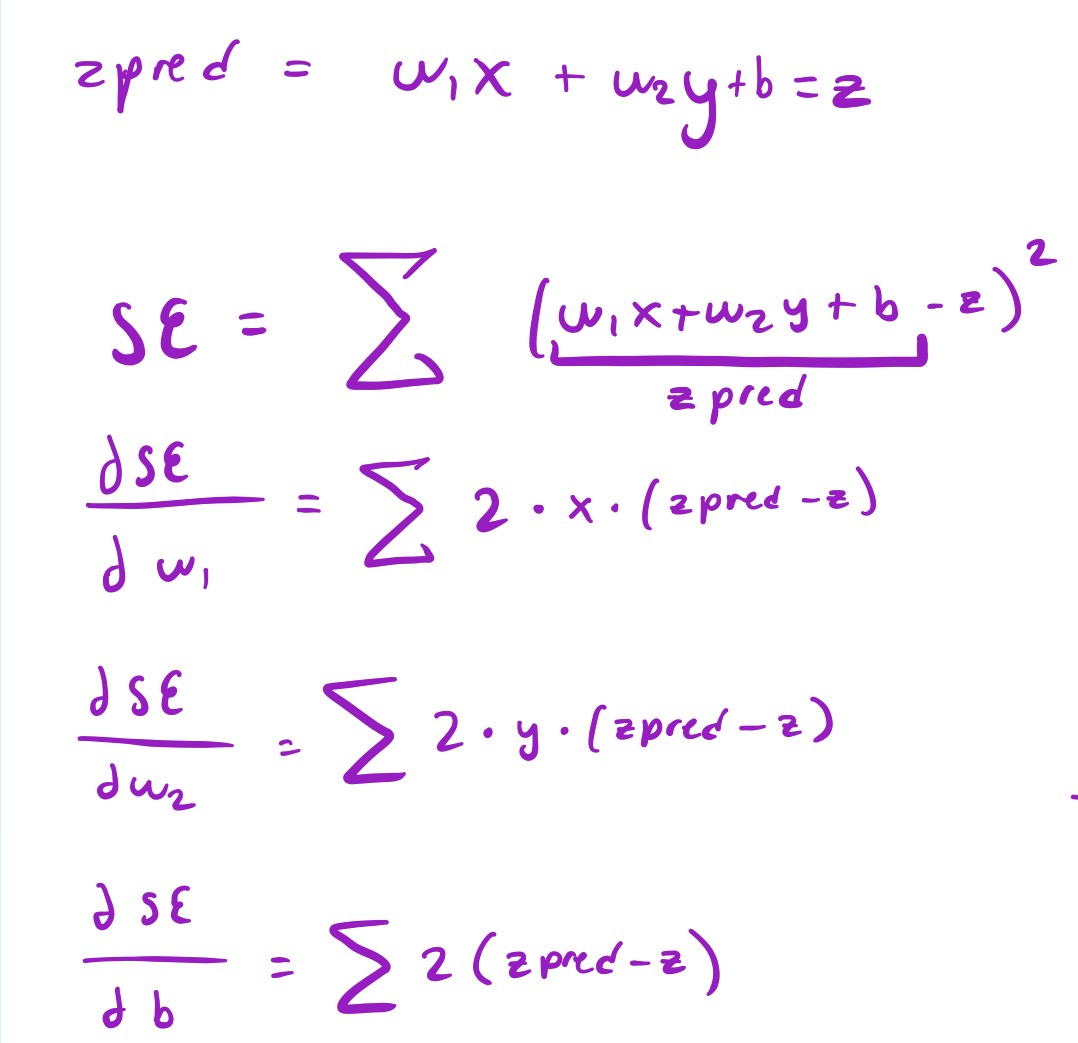 zpred = w₁x + w₂y+b = z
SE = Σ (w₁x+w₂y + b - z)²
zpred
∂SE/∂w₁ = Σ 2 · x · (zpred - z)
∂SE/∂w₂ = Σ 2 · y · (zpred - z)
∂SE/∂b = Σ 2 (zpred - z)